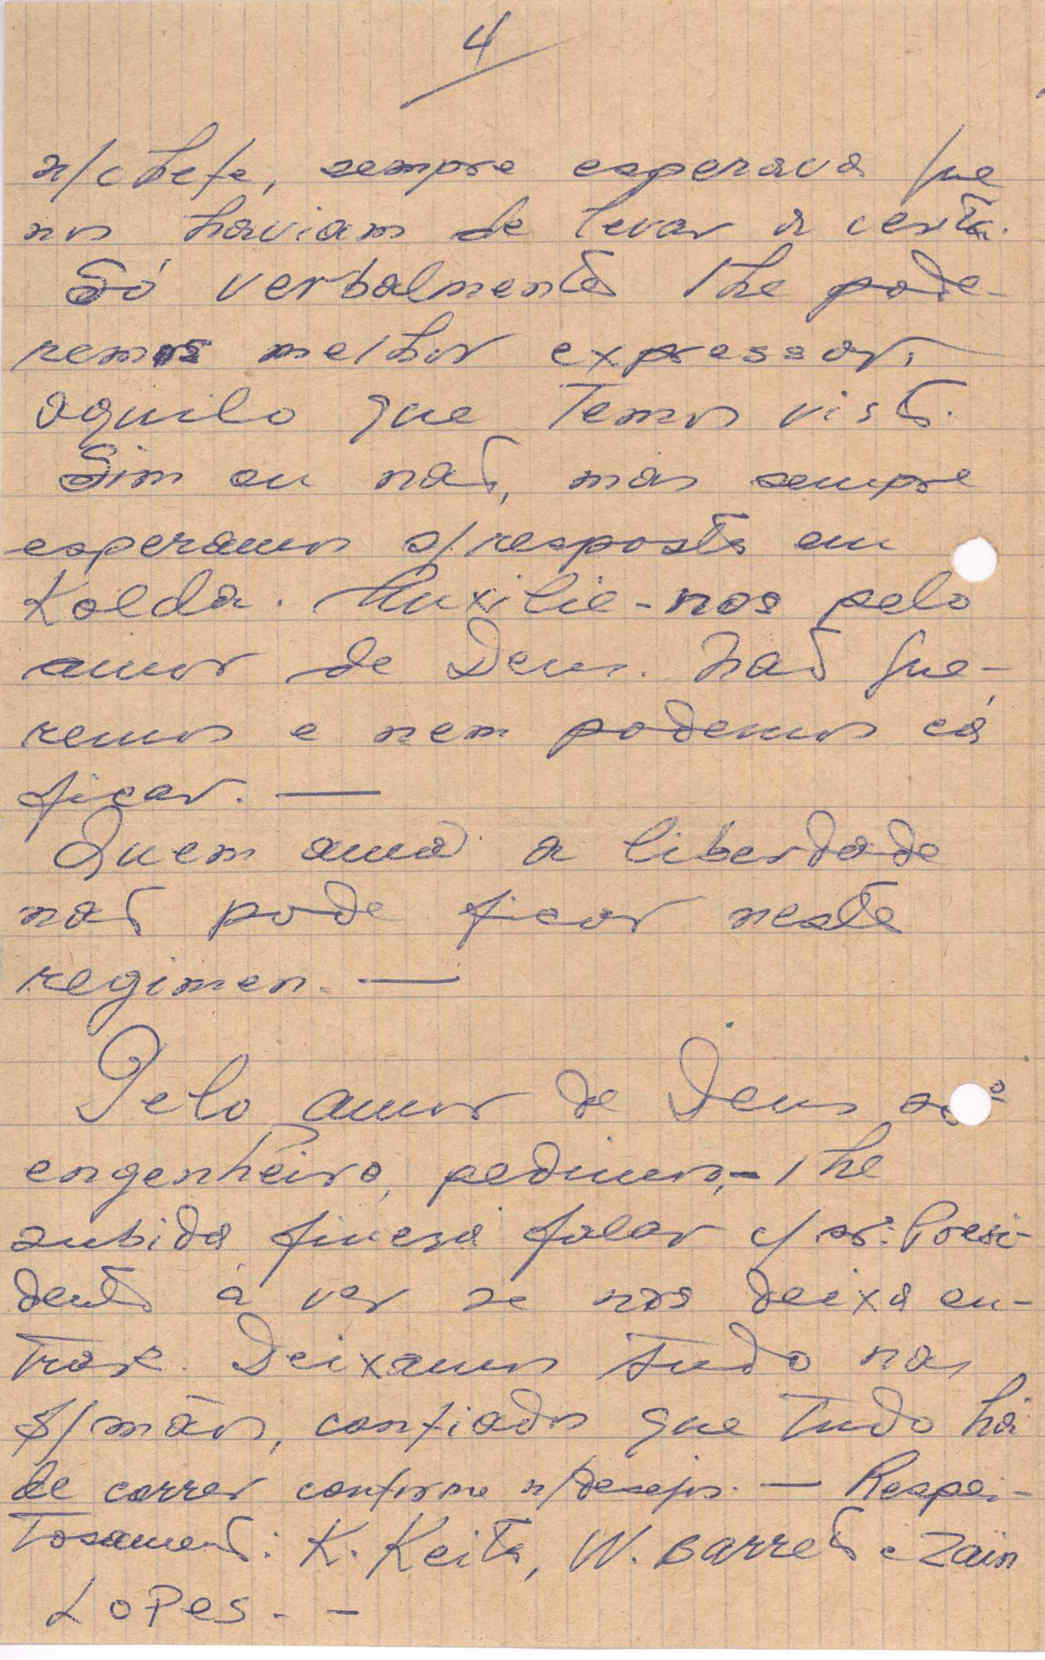 4
n/chefe, sempre esperava que
nos haviam de levar a certa.
Só verbalmente lhe pode-
remos melhor expressar,
aquilo que temos visto.
Sim ou não, mas sempre
esperamos s/resposta em
Kolda. Auxilie-nos pelo
amor de Deus. Não que-
remos e nem podemos cá
ficar. —
Quem ama a liberdade
não pode ficar neste
regimen. —
Pelo amor de Deus
engenheiro, pedimos,-lhe
subida fineza falar c/ sr. Presi-
dente à ver se nos deixa en-
trar. Deixamos tudo nas
s/mãos, confiados que tudo há
de correr conforme n/desejos. — Respei-
tosamente: K. Keita, W. Barreto e Zain
Lopes. -